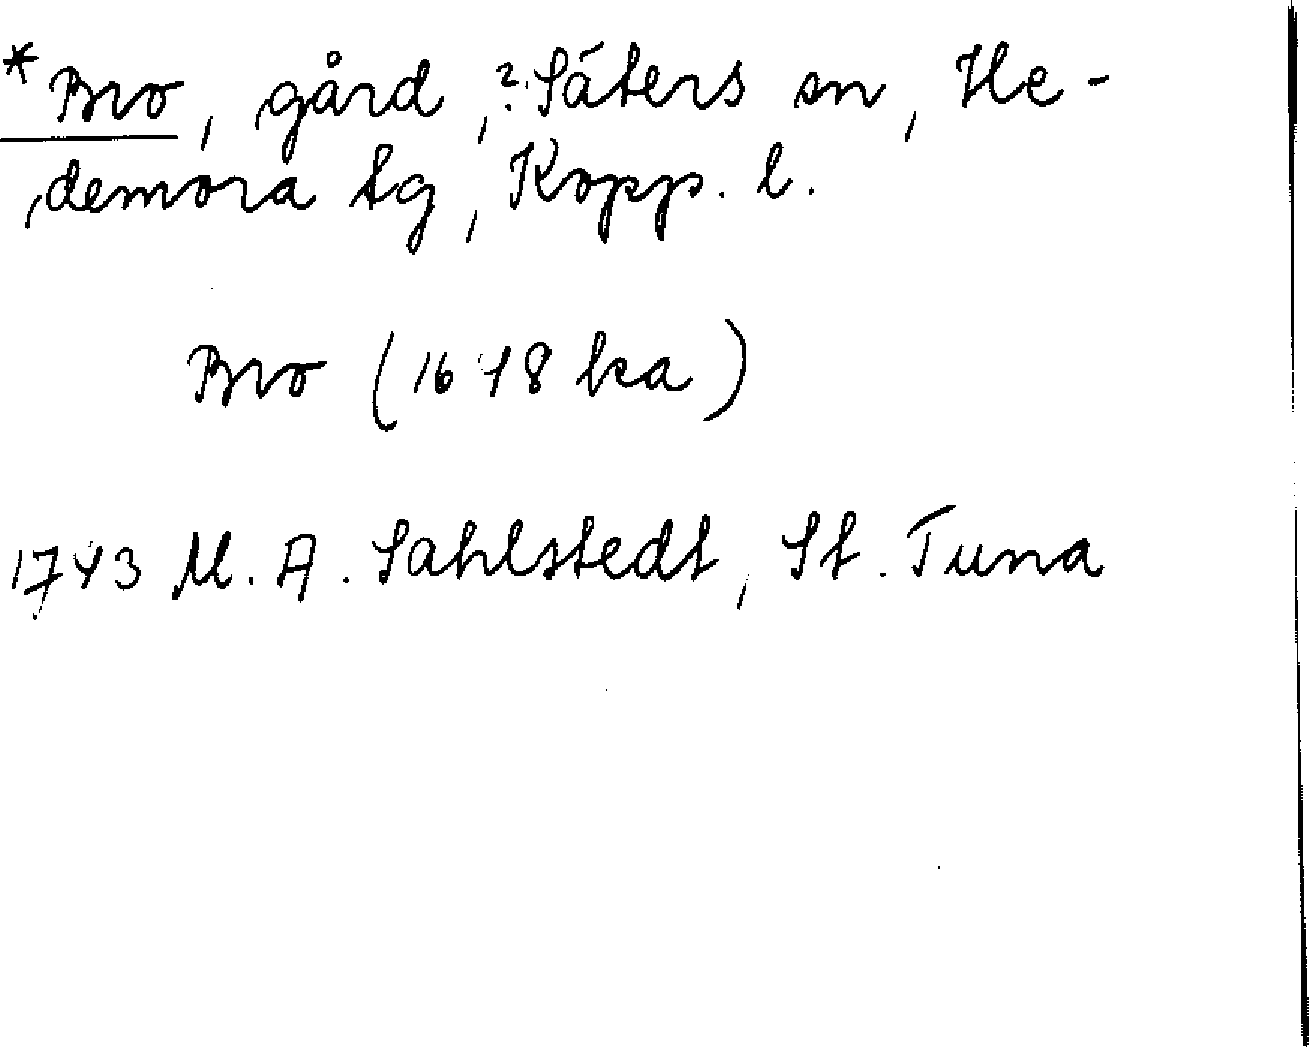 *Bro, gård, ?Säters sn, He-
demora tg, Kopp. l.
Bro (1678 ka)
1743 M. A. Sahlstedt, St. Tuna